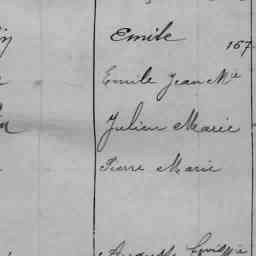 Emile 167
Emile Jean Mie
Julien Marie
Pierre Marie
Auguste